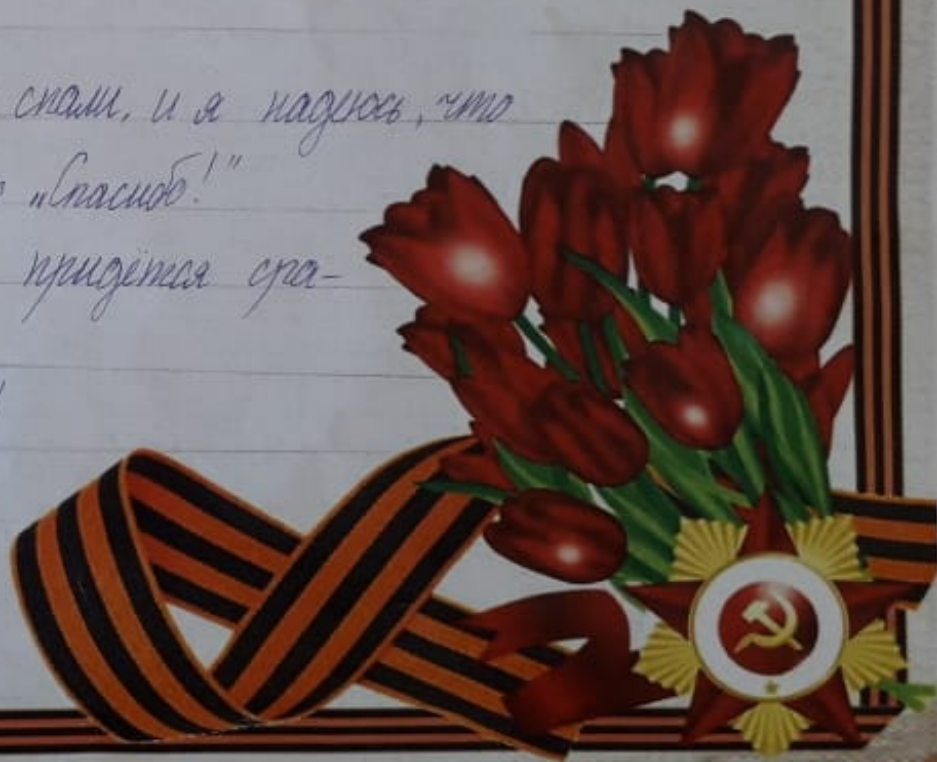 спали, и я надеюсь, что
„Спасибо!”
придётся сра-